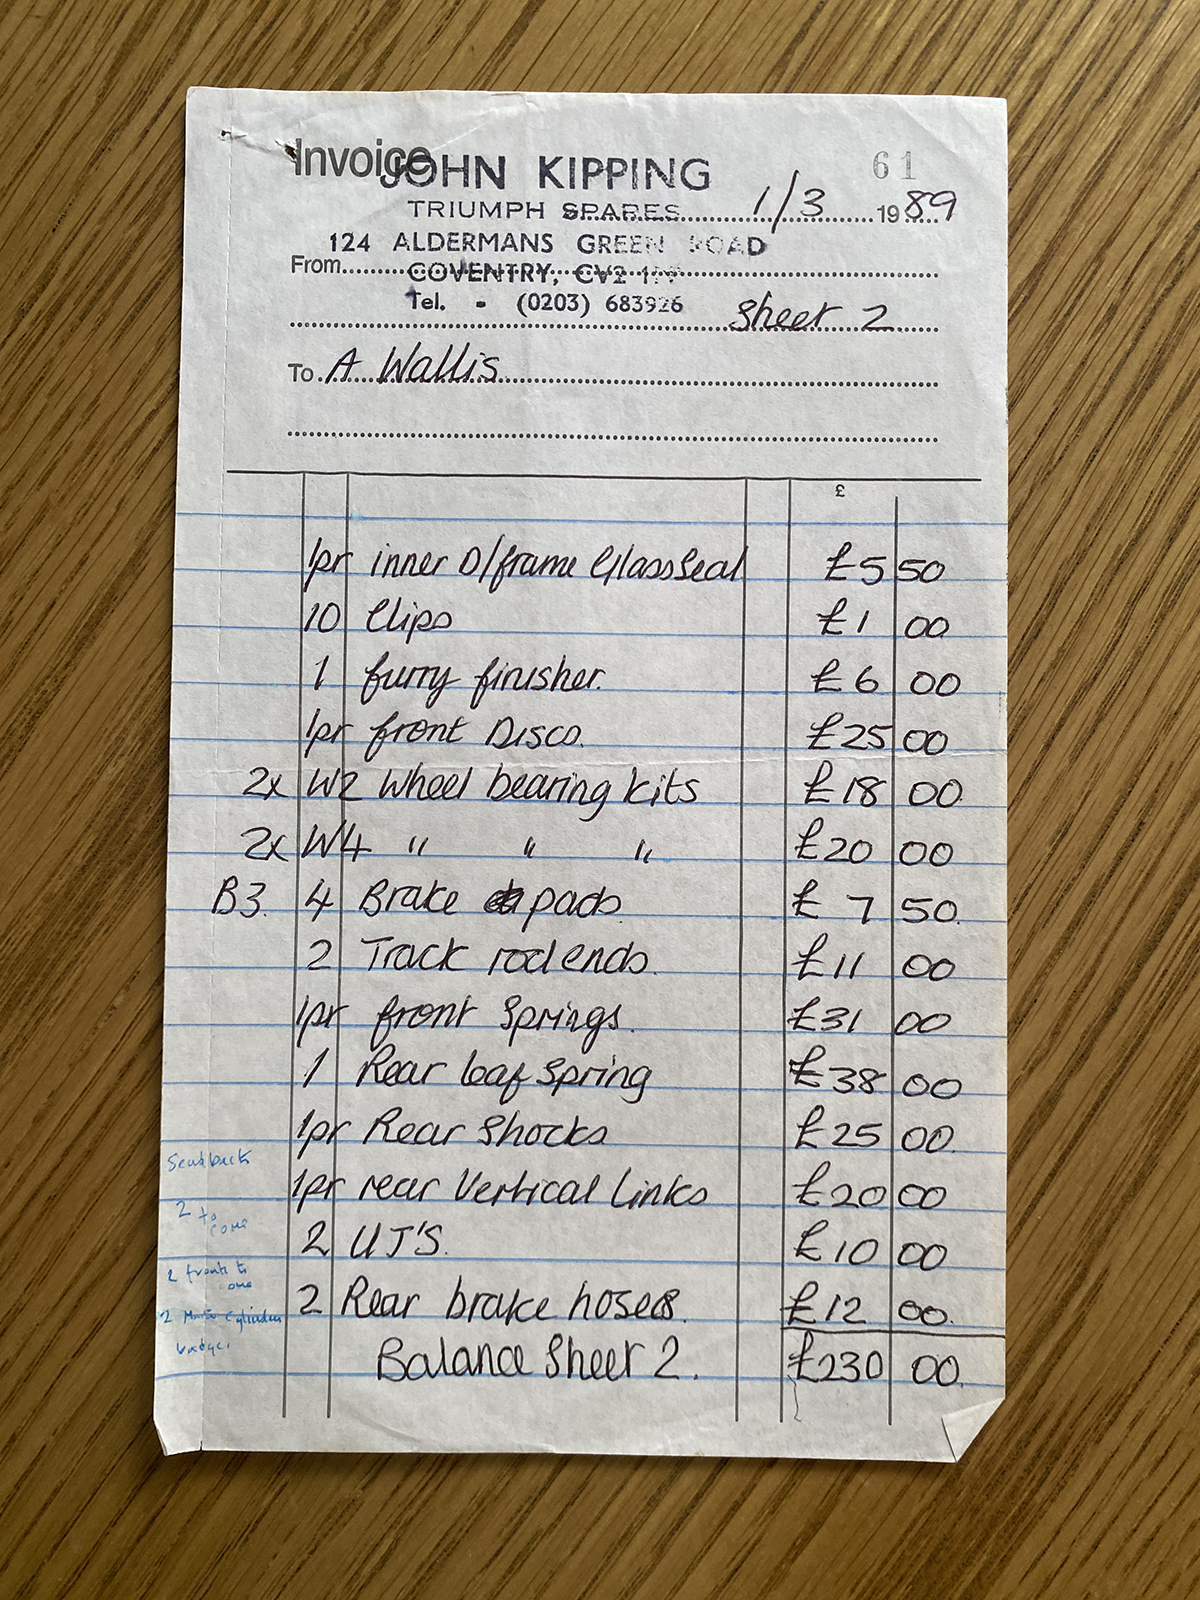 Invoice
JOHN KIPPING 61
TRIUMPH SPARES 1/3 1989
124 ALDERMANS GREEN ROAD
From COVENTRY, CV2
Tel. - (0203) 683926 Sheet 2
To A Wallis
£
1pr inner D/frame Glass Seal £5 50
10 Clips £1 00
1 furry finisher. £6 00
1pr front Discs. £25 00
2x W2 Wheel bearing kits £18 00
2x W4 " " " £20 00
B3. 4 Brake pads. £7 50
2 Track rod ends. £11 00
1pr front Springs. £31 00
1 Rear leaf spring £38 00
1pr Rear Shocks £25 00
Seatback
1pr rear Vertical Links £20 00
2 to come
2 UJ'S. £10 00
2 front to come
2 Rear brake hoses. £12 00
2 Master Cylinder
Balance Sheet 2. £230 00